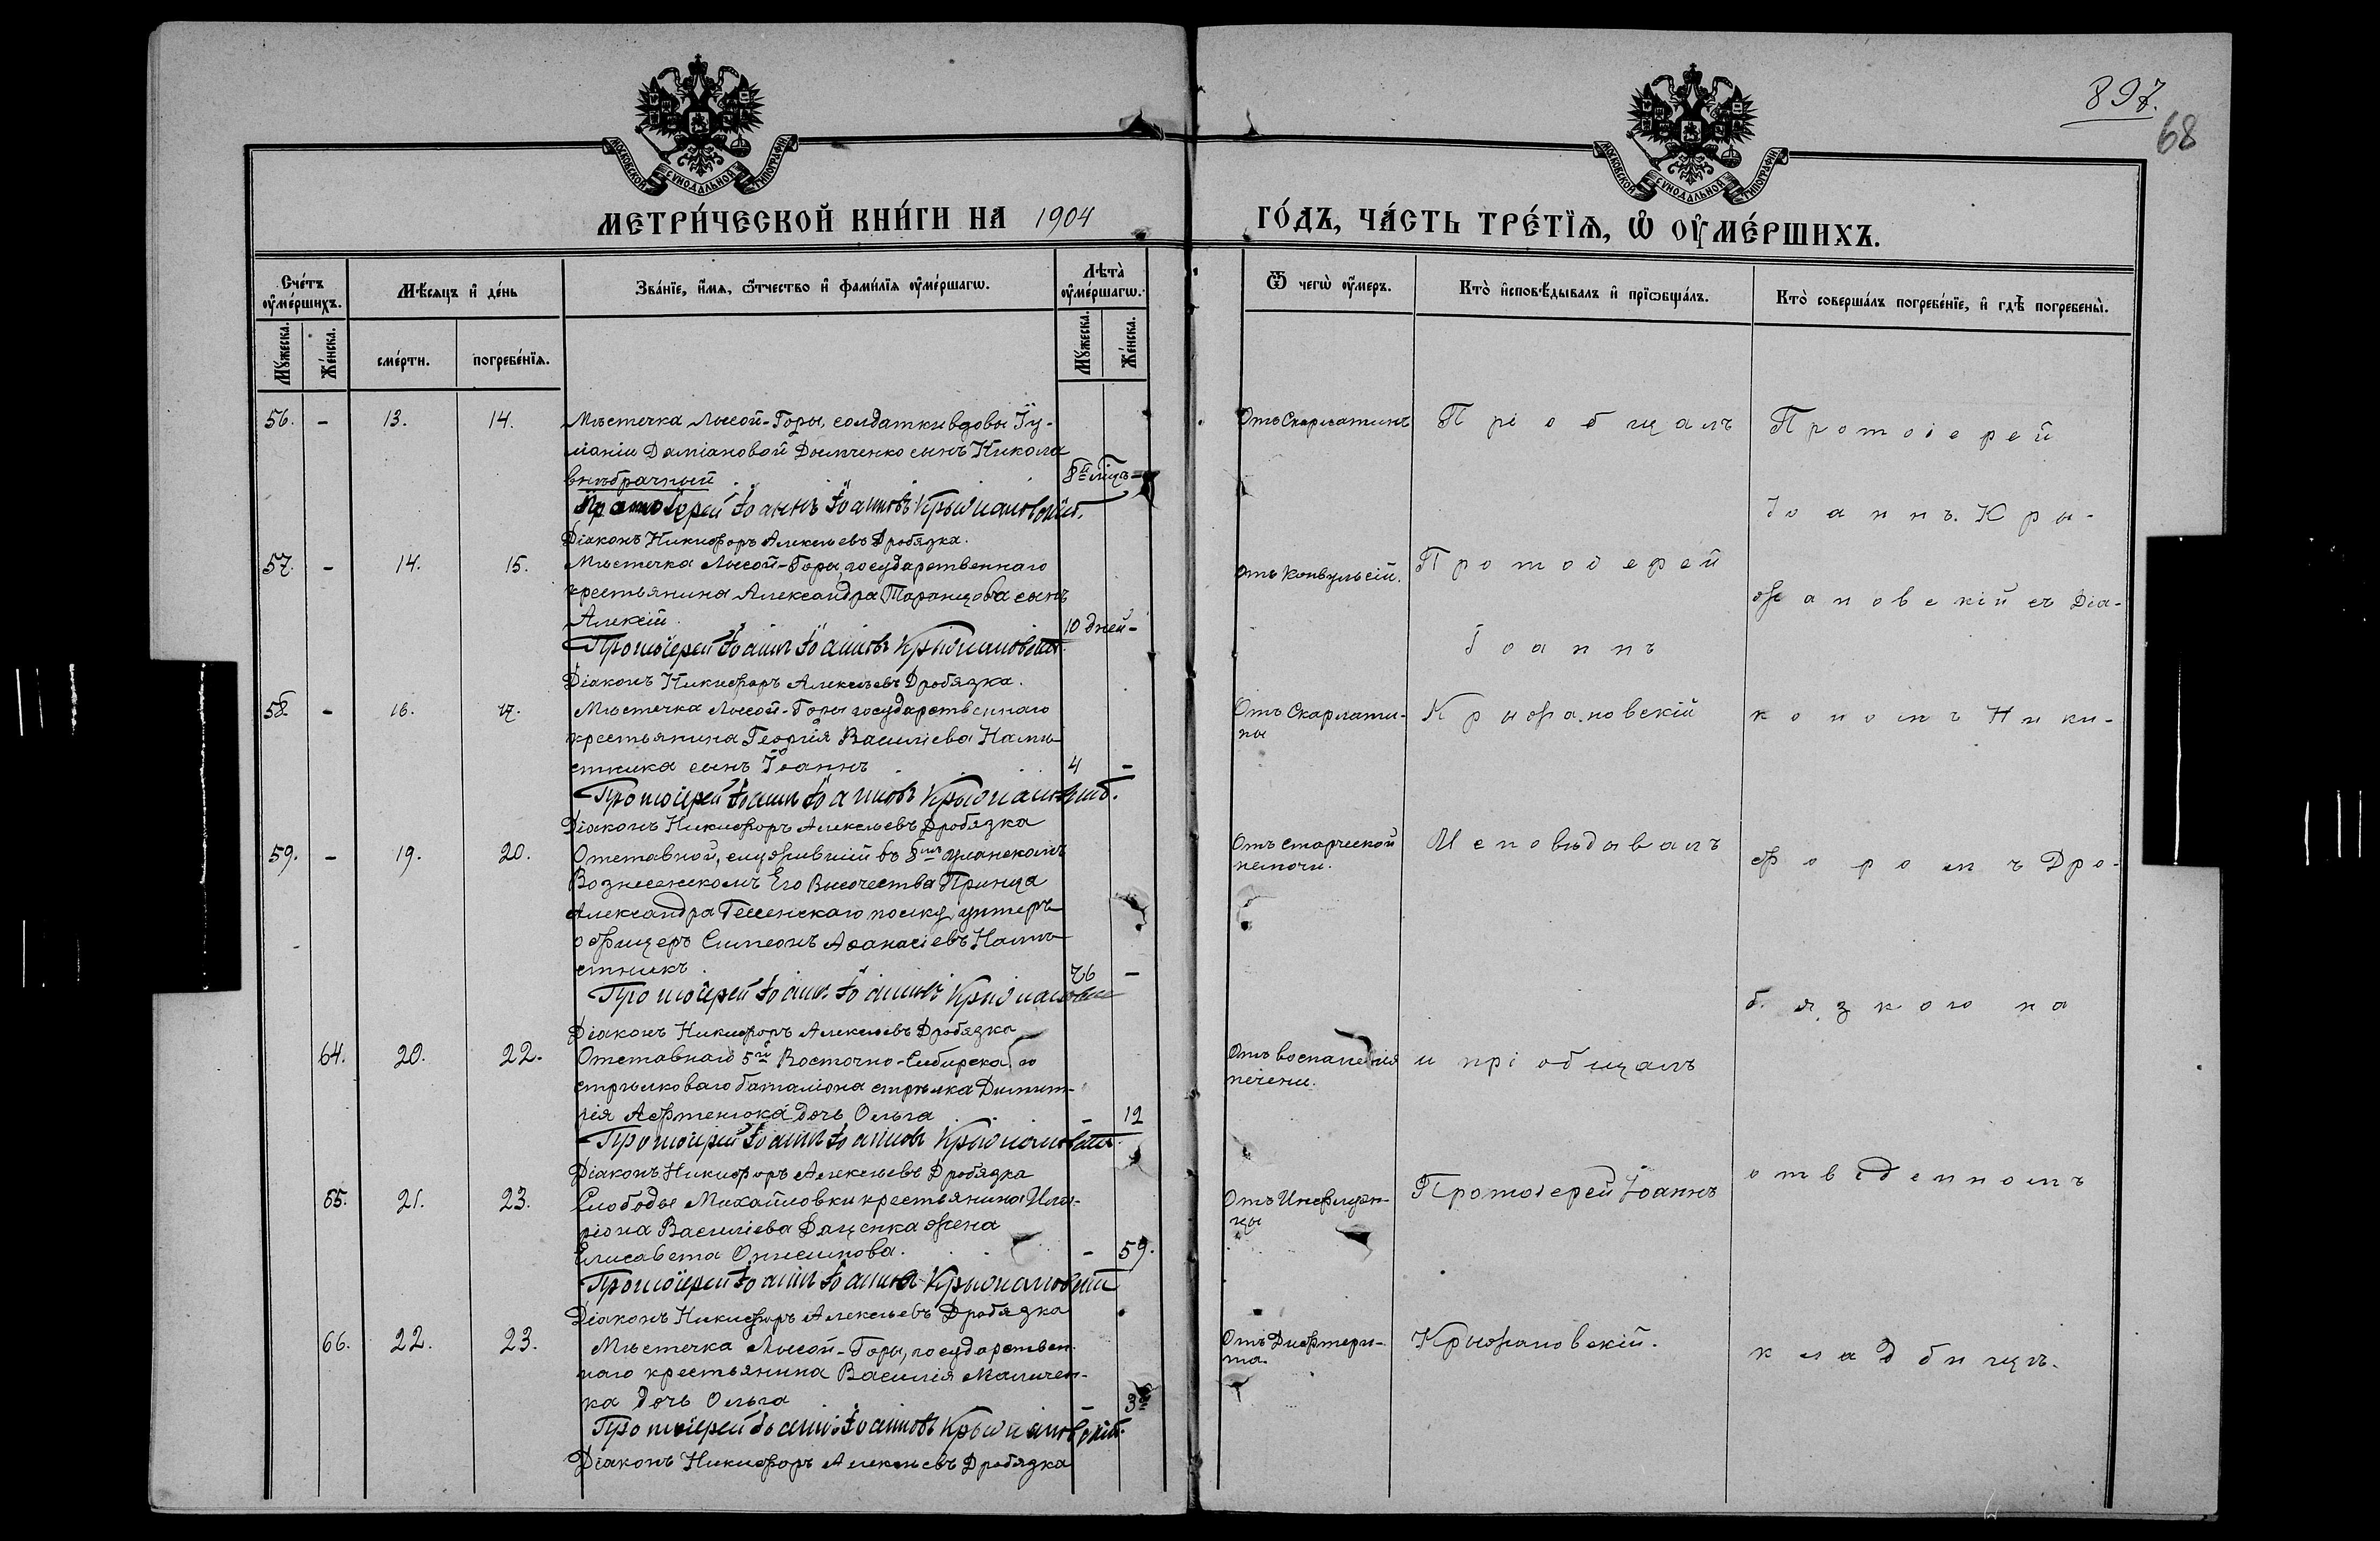 897.
68
МОСКОВСКОЙ СУНОДАЛЬНОЙ ТИПОГРАФІИ
МОСКОВСКОЙ СУНОДАЛЬНОЙ ТИПОГРАФІИ
МЕТРИ́ЧЕСКОЙ КНИ́ГИ НА 1904 ГО́ДЪ, ЧА́СТЬ ТРЕ́ТЇѦ, Ѡ ОУМЕ́РШИХЪ.
Сче́тъ оумершихъ.
Мѣ́сяцъ и де́нь
Зва́нїе, и́мѧ, ѻтчество и фами́лїѧ оуме́ршагѡ.
Лѣта̀ оуме́ршагѡ.
Ѿ чегѡ̀ оу́меръ.
Кто̀ исповѣ́дывалъ и прїѻбща́лъ.
Кто̀ соверша́лъ погребе́нїе, и гдѣ̀ погребены̀.
Му́жеска.
Же́нска.
сме́рти.
погребе́нїѧ.
Му́жеска.
Же́нска.
56. - 13. 14. Мѣстечка Лысой-Горы, солдатки вдовы Іу-
ліаніи Даміановой Дымченко сынъ Никола
внѣбрачный 8 мцъ -
Протоіерей Іоаннъ Іоанновъ Крыжановскій.
Діаконъ Никифоръ Алексѣевъ Дробязка.
57. - 14. 15. Мѣстечка Лысой-Горы, государственнаго
крестьянина Александра Таранцова сынъ
Алексій. 10 дней -
Протоіерей Іоаннъ Іоанновъ Крыжановскій.
Діаконъ Никифоръ Алексѣевъ Дробязка.
58. - 16. 17. Мѣстечка Лысой-Горы государственнаго
крестьянина Георгія Василіева Намѣ-
стника сынъ Іоаннъ 4 -
Протоіерей Іоаннъ Іоанновъ Крыжановскій.
Діаконъ Никифоръ Алексѣевъ Дробязка
59. - 19. 20. Отставной, служившій въ 8мъ уланскомъ
Вознесенскомъ Его Высочества Принца
Александра Гессенскаго полку, унтеръ
офицеръ Симеонъ Аѳанасіевъ Намѣ-
стникъ. 76 -
Протоіерей Іоаннъ Іоанновъ Крыжановскій
Діаконъ Никифоръ Алексѣевъ Дробязка
64. 20. 22. Отставнаго 5го Восточно-Сибирскаго
стрѣлковаго баталіона стрѣлка Димит-
рія Лофтенюка дочь Ольга - 12
Протоіерей Іоаннъ Іоанновъ Крыжановскій.
Діаконъ Никифоръ Алексѣевъ Дробязка
65. 21. 23. Слободы Михайловки крестьянина Ила-
ріона Василіева Даценка жена
Елисавета Онисимова. - 59.
Протоіерей Іоаннъ Іоанновъ Крыжановскій
Діаконъ Никифоръ Алексѣевъ Дробязка
66. 22. 23. Мѣстечка Лысой-Горы, государствен-
наго крестьянина Василія Маличен-
ка дочь Ольга 3
Протоіерей Іоаннъ Іоанновъ Крыжановскій.
Діаконъ Никифоръ Алексѣевъ Дробязка
Отъ Скарлатины
Отъ Конвульсій.
Отъ Скарлати-
ны
Отъ старческой
немочи.
Отъ воспаленія
печени.
Отъ Инфлуэн-
цы
Отъ Дифтери-
та.
Пріобщалъ
Протоіерей
Іоаннъ
Крыжановскій
Исповѣдывалъ
и пріобщалъ
Протоіерей Іоаннъ
Крыжановскій.
Протоіерей
Іоаннъ Кры-
жановскій съ Діа-
кономъ Ники-
форомъ Дро-
бязкою на
отведенномъ
кладбищѣ.